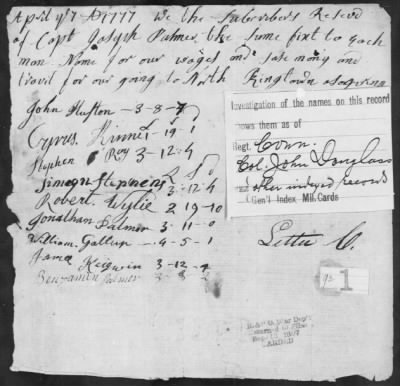 April ye 7 AD1777 We the Subscribers Receivd
of Capt Joseph Palmer the sume fixt to Each
man Name for our wages and sase mony and
travil for our going to North Kingstown
John Huston — 3 - 8 - 7
Cyrus Kinne - 19 - 1
Stephen Roy 3 - 12 - 4
Simeon Stephens 3 - 12 - 4
Robert Wylie 2 19 - 10
Jonathan Palmer 3 - 11 - 0
William Gallup — 4 - 5 - 1
Keigwin 3 - 12 - 4
Benjamin Palmer 3 - 8 - 2
Investigation of the names on this record
shows them as of
Regt. Conn.
Col. John Douglass
and other indexed records
(Gen'l Index Mil. Cards
Letter C.
1
CARDED